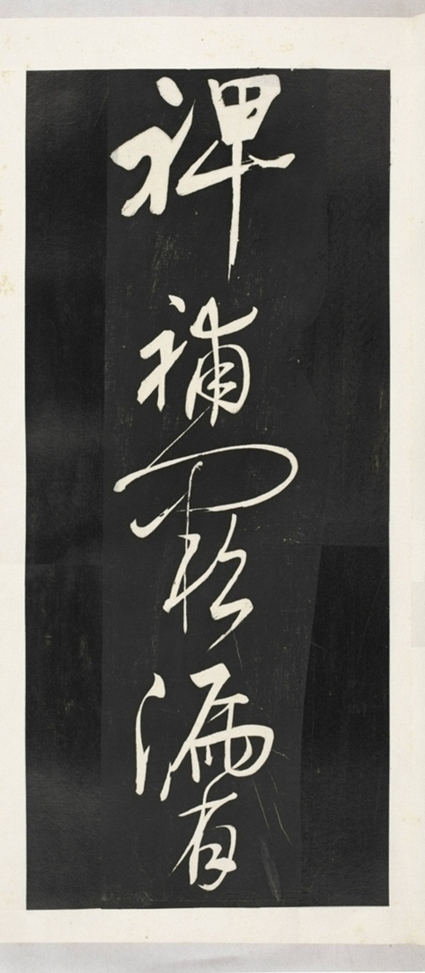 裨補闕漏有